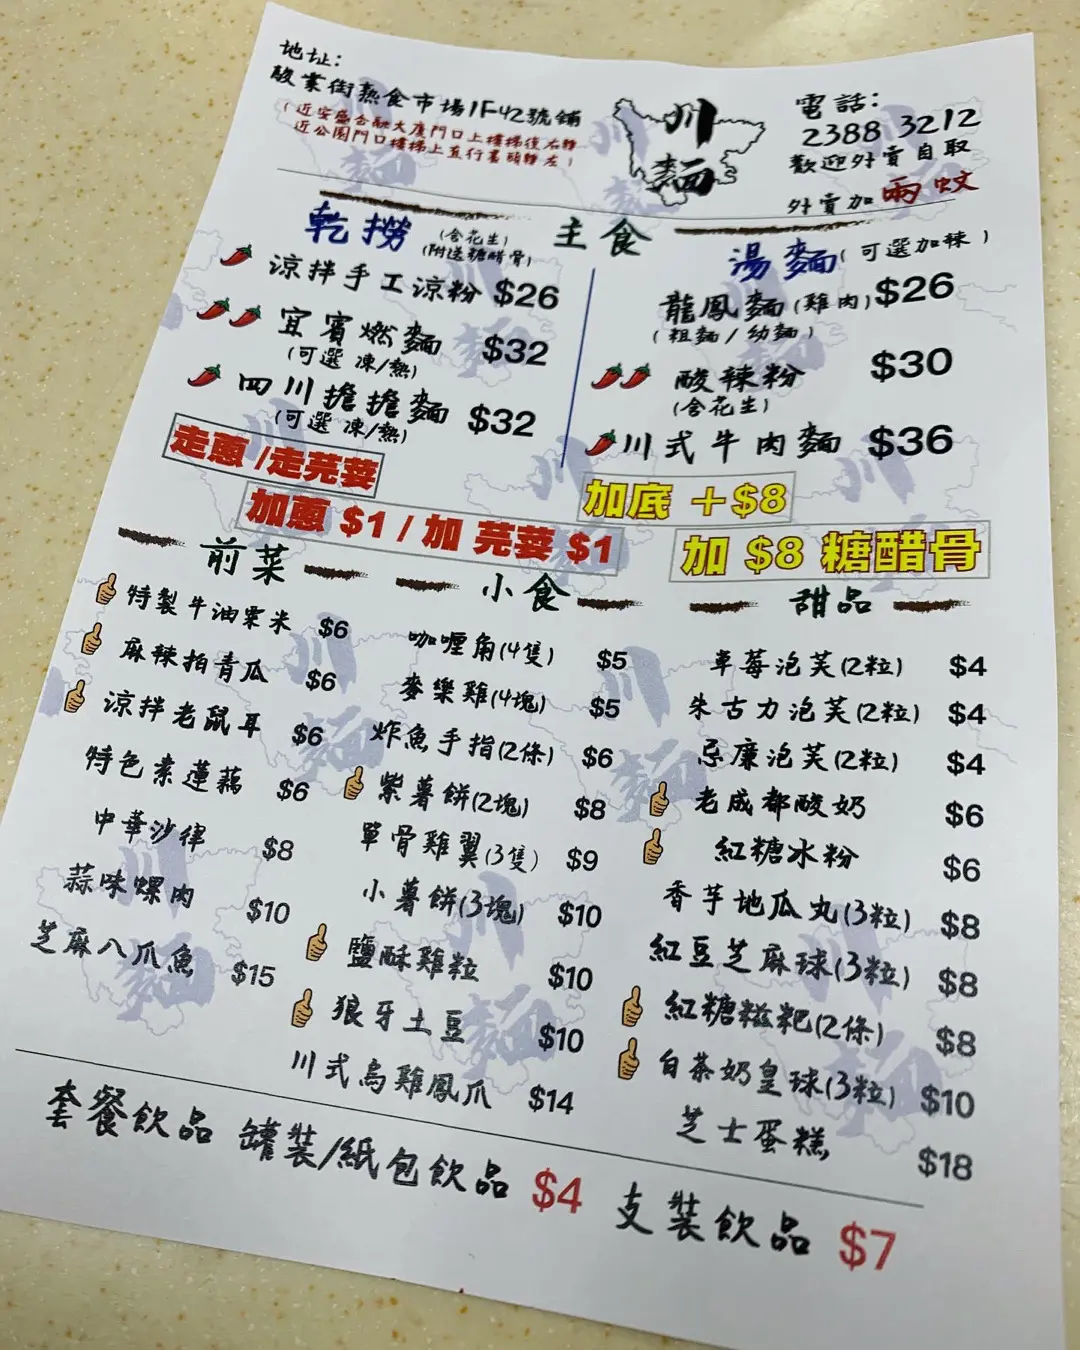 地址:
駿業街熱食市場1F42號鋪
(近安盛金融大廈門口上樓梯後右轉
近公園門口樓梯上直行盡頭轉左)
川
麵
電話:
2388 3212
歡迎外賣自取
外賣加兩蚊
主食
乾撈 (含花生)
(附送糖醋骨)
涼拌手工涼粉 $26
宜賓燃麵 $32
(可選 凍/熱)
四川擔擔麵 $32
(可選 凍/熱)
湯麵 (可選加辣)
龍鳳麵(雞肉) $26
(粗麵/幼麵)
酸辣粉 $30
(含花生)
川式牛肉麵 $36
走蔥/走芫荽
加蔥 $1 / 加 芫荽 $1
加底 +$8
加 $8 糖醋骨
前菜
特製牛油粟米 $6
麻辣拍青瓜 $6
涼拌老鼠耳 $6
特色素蓮藕 $6
中華沙律 $8
蒜味螺肉 $10
芝麻八爪魚 $15
小食
咖喱角(4隻) $5
麥樂雞(4塊) $5
炸魚手指(2條) $6
紫薯餅(2塊) $8
單骨雞翼(3隻) $9
小薯餅(3塊) $10
鹽酥雞粒 $10
狼牙土豆 $10
川式烏雞鳳爪 $14
甜品
草莓泡芙(2粒) $4
朱古力泡芙(2粒) $4
忌廉泡芙(2粒) $4
老成都酸奶 $6
紅糖冰粉 $6
香芋地瓜丸(3粒) $8
紅豆芝麻球(3粒) $8
紅糖糍粑(2條) $8
白茶奶皇球(3粒) $10
芝士蛋糕 $18
套餐飲品 罐裝/紙包飲品 $4 支裝飲品 $7